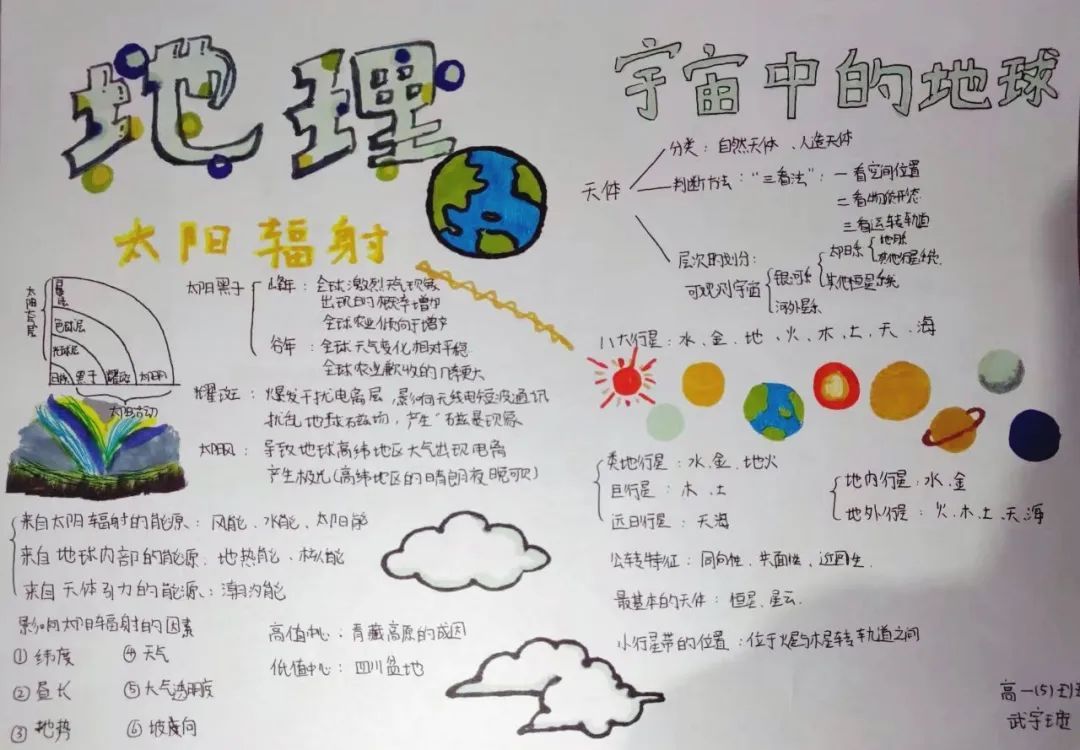 地理
太阳辐射
太阳大气层
日冕层
色球层
光球层
黑子 耀斑 太阳风
太阳活动
太阳黑子
峰年：全球激烈天气现象
出现的概率增加
全球农业倾向于增产
谷年：全球天气变化相对平稳
全球农业歉收的几率更大
耀斑：爆发干扰电离层，影响无线电短波通讯
扰乱地球磁场，产生“磁暴现象
太阳风：导致地球高纬地区大气出现电离
产生极光（高纬地区的晴朗夜晚可见）
来自太阳辐射的能源：风能、水能、太阳能
来自地球内部的能源：地热能、核能
来自天体引力的能源：潮汐能
影响太阳辐射的因素
① 纬度 ④ 天气
② 昼长 ⑤ 大气透明度
③ 地势 ⑥ 坡度向
高值中心：青藏高原的成因
低值中心：四川盆地
宇宙中的地球
天体
分类：自然天体、人造天体
判断方法：“三看法”：一看空间位置
二看物质形态
三看运转轨道
层次的划分：
可观测宇宙
银河系
太阳系
地月系
其他行星系统
其他恒星系统
河外星系
八大行星：水、金、地、火、木、土、天、海
类地行星：水、金、地火
巨行星：木、土
远日行星：天海
地内行星：水、金
地外行星：火、木、土、天、海
公转特征：同向性、共面性、近圆性
最基本的天体：恒星、星云
小行星带的位置：位于火星与木星转轨道之间
高一(5)班
武宇瑾